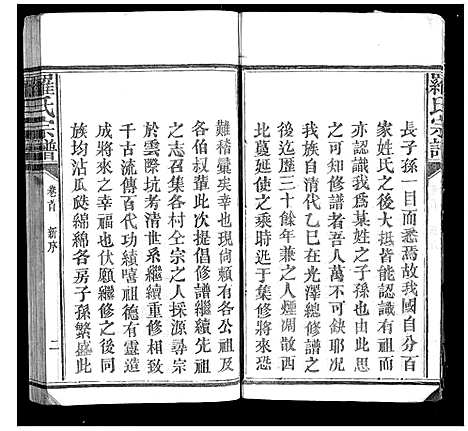 羅氏宗譜
長子孫一目而悉焉故我國自分百
家姓氏之後大抵皆能認識有祖
亦認識我為某姓之子孫也由此思
之可知修譜者吾人萬不可缺耶况
我族自清代乙巳在光澤總修譜之
後迄歷三十餘年兼之人煙凋散西
此蔓延使之乘時延于集修將之
難稽彙矣幸也現尚賴有各公祖及
各伯叔輩此次提倡修譜繼續先祖
之志召集各村仝宗之人採源尋宗
於雲際坑考清世系繼續重修相傳
千古流傳百代功績嘻祖德有靈造
成將來之幸福也伏願修之之後同
族均沾瓜瓞綿綿各房子孫繁盛此
羅氏宗譜
卷首
新序
二